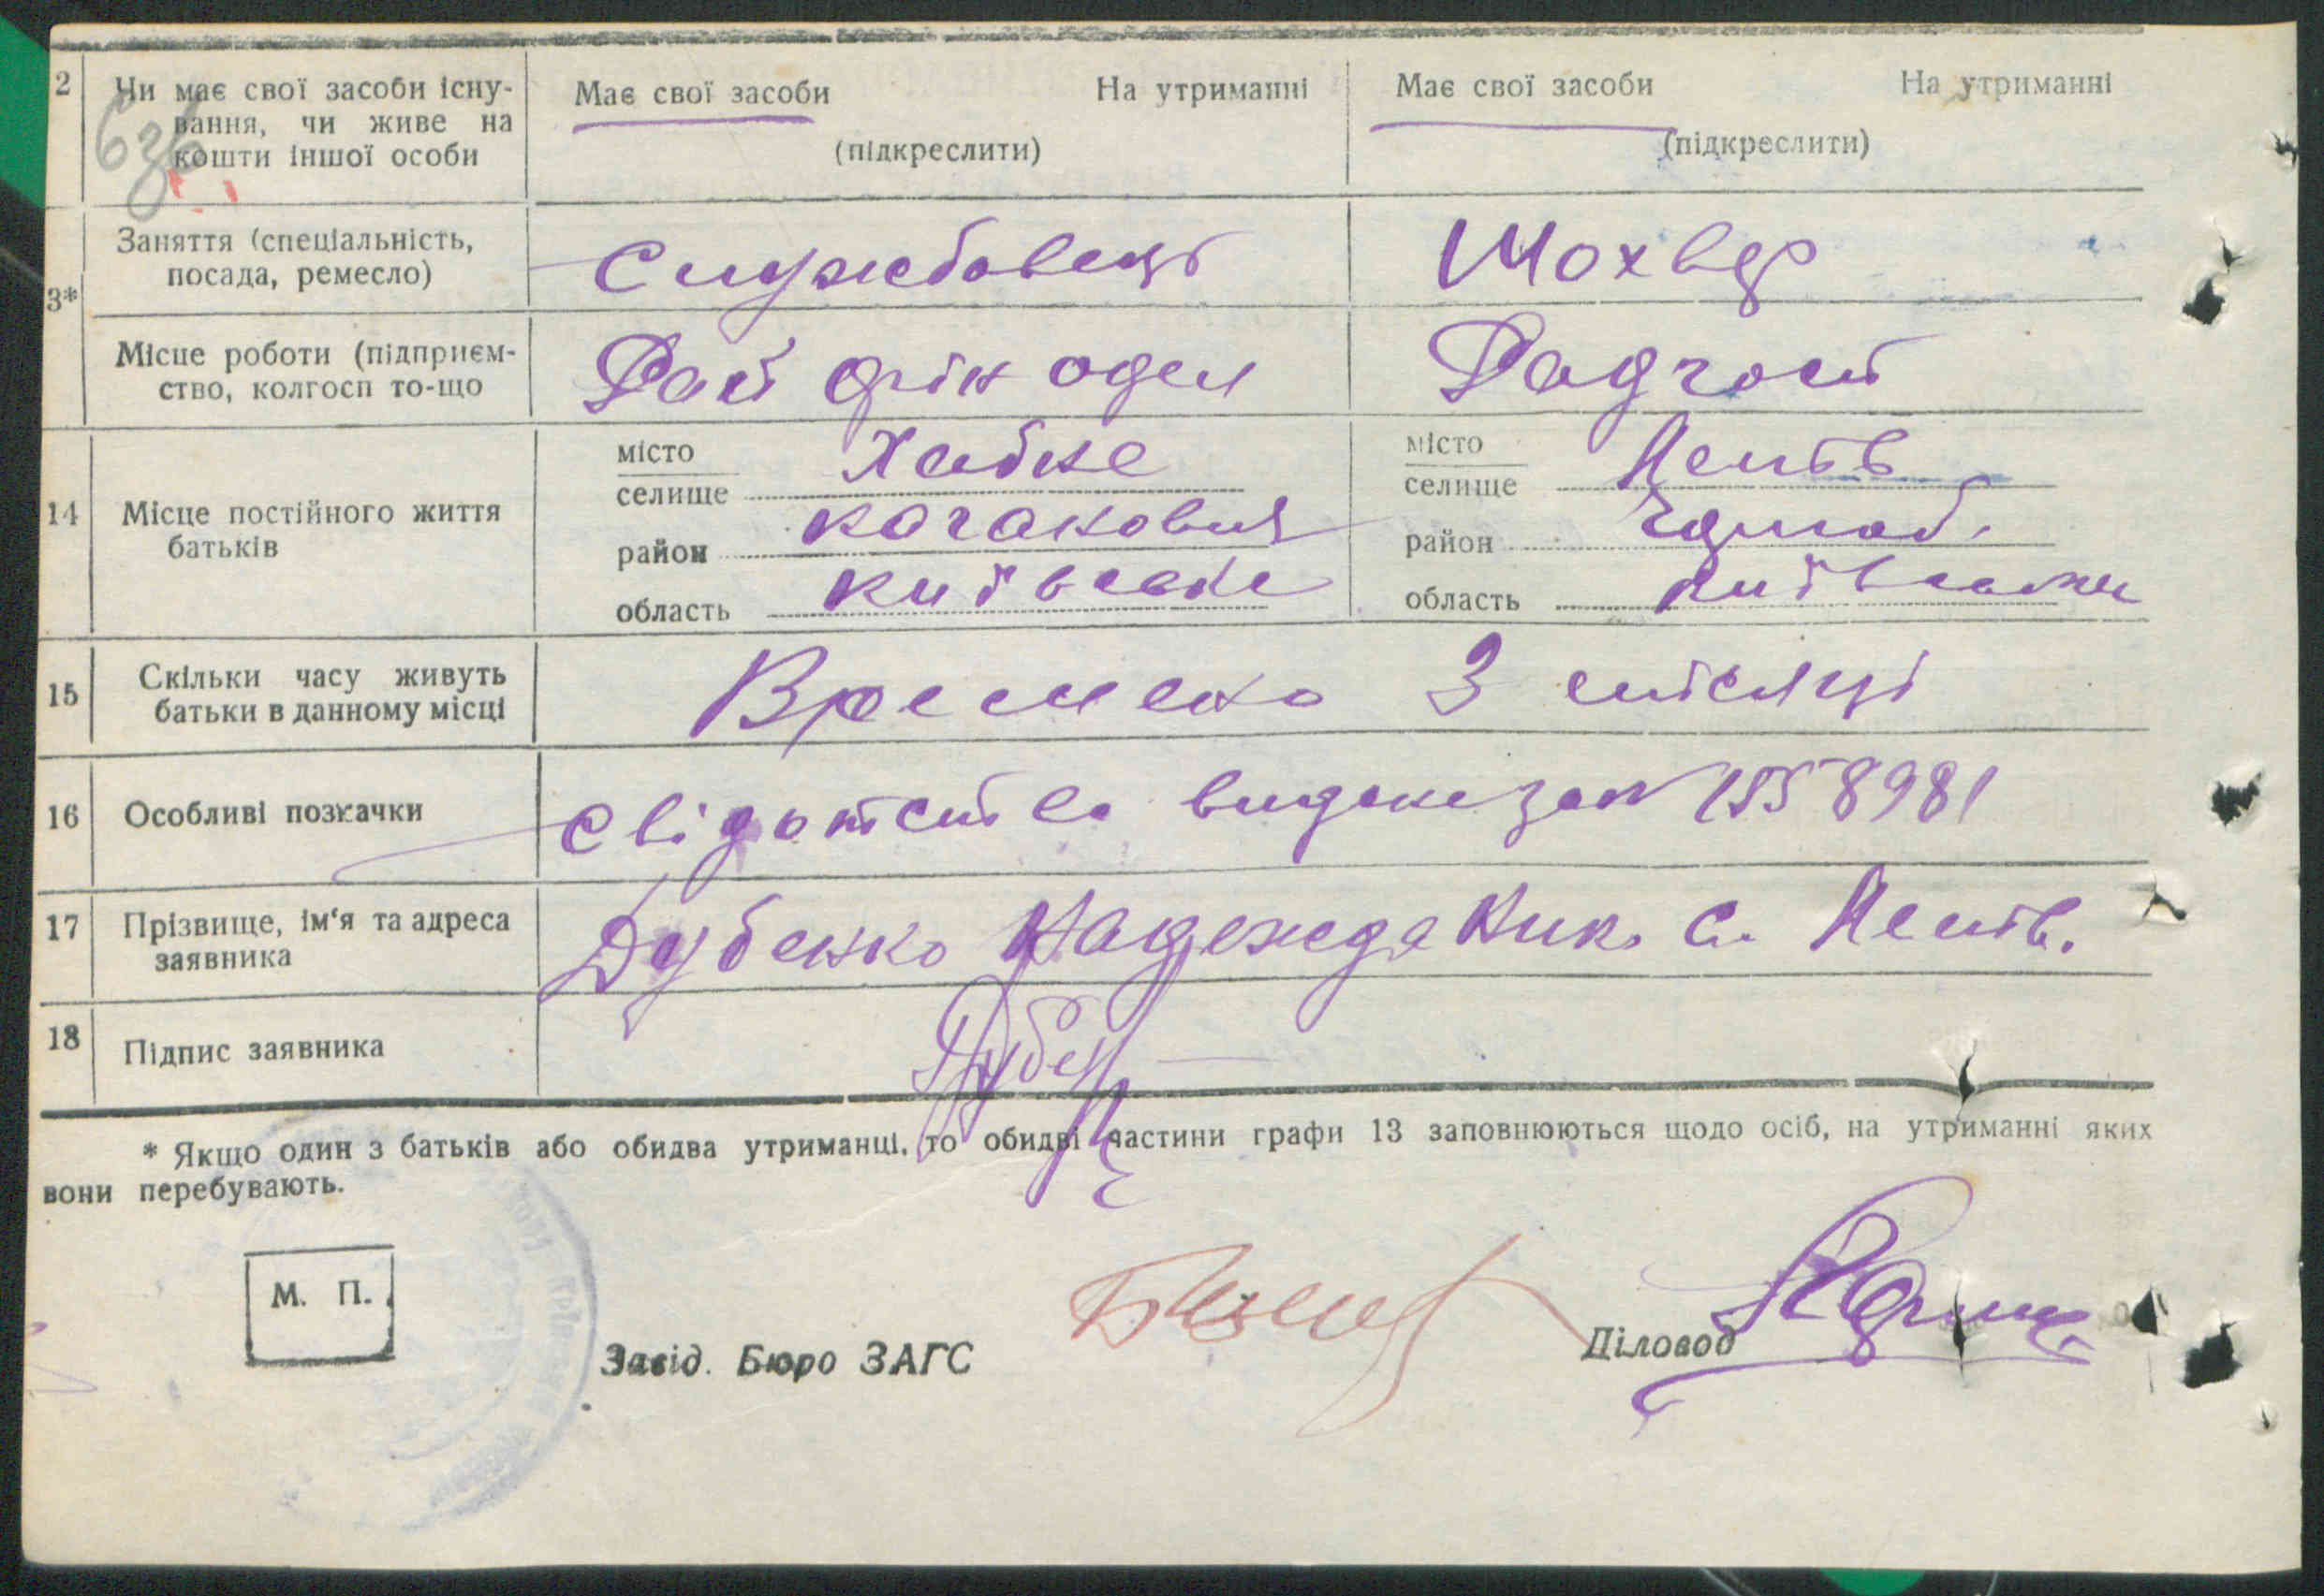 2 Чи має свої засоби існу- Має свої засоби На утриманні Має свої засоби На утриманні
вання, чи живе на
кошти іншої особи (підкреслити) (підкреслити)
636
Заняття (спеціальність, Службовець Шохвер
посада, ремесло)
3*
Місце роботи (підприєм- Рай фін одел Радгосп
ство, колгосп то-що
місто Хабне місто
селище селище
14 Місце постійного життя
батьків
район район
область Київське область
15 Скільки часу живуть Времено 3 місяці
батьки в данному місці
16 Особливі позначки Свідотство видане за № 1558981
17 Прізвище, ім'я та адреса Дубенко Надежда Ник. с.
заявника
18 Підпис заявника
* Якщо один з батьків або обидва утриманці, то обидві частини графи 13 заповнюються щодо осіб, на утриманні яких
вони перебувають.
М. П.
Завід. Бюро ЗАГС Діловод